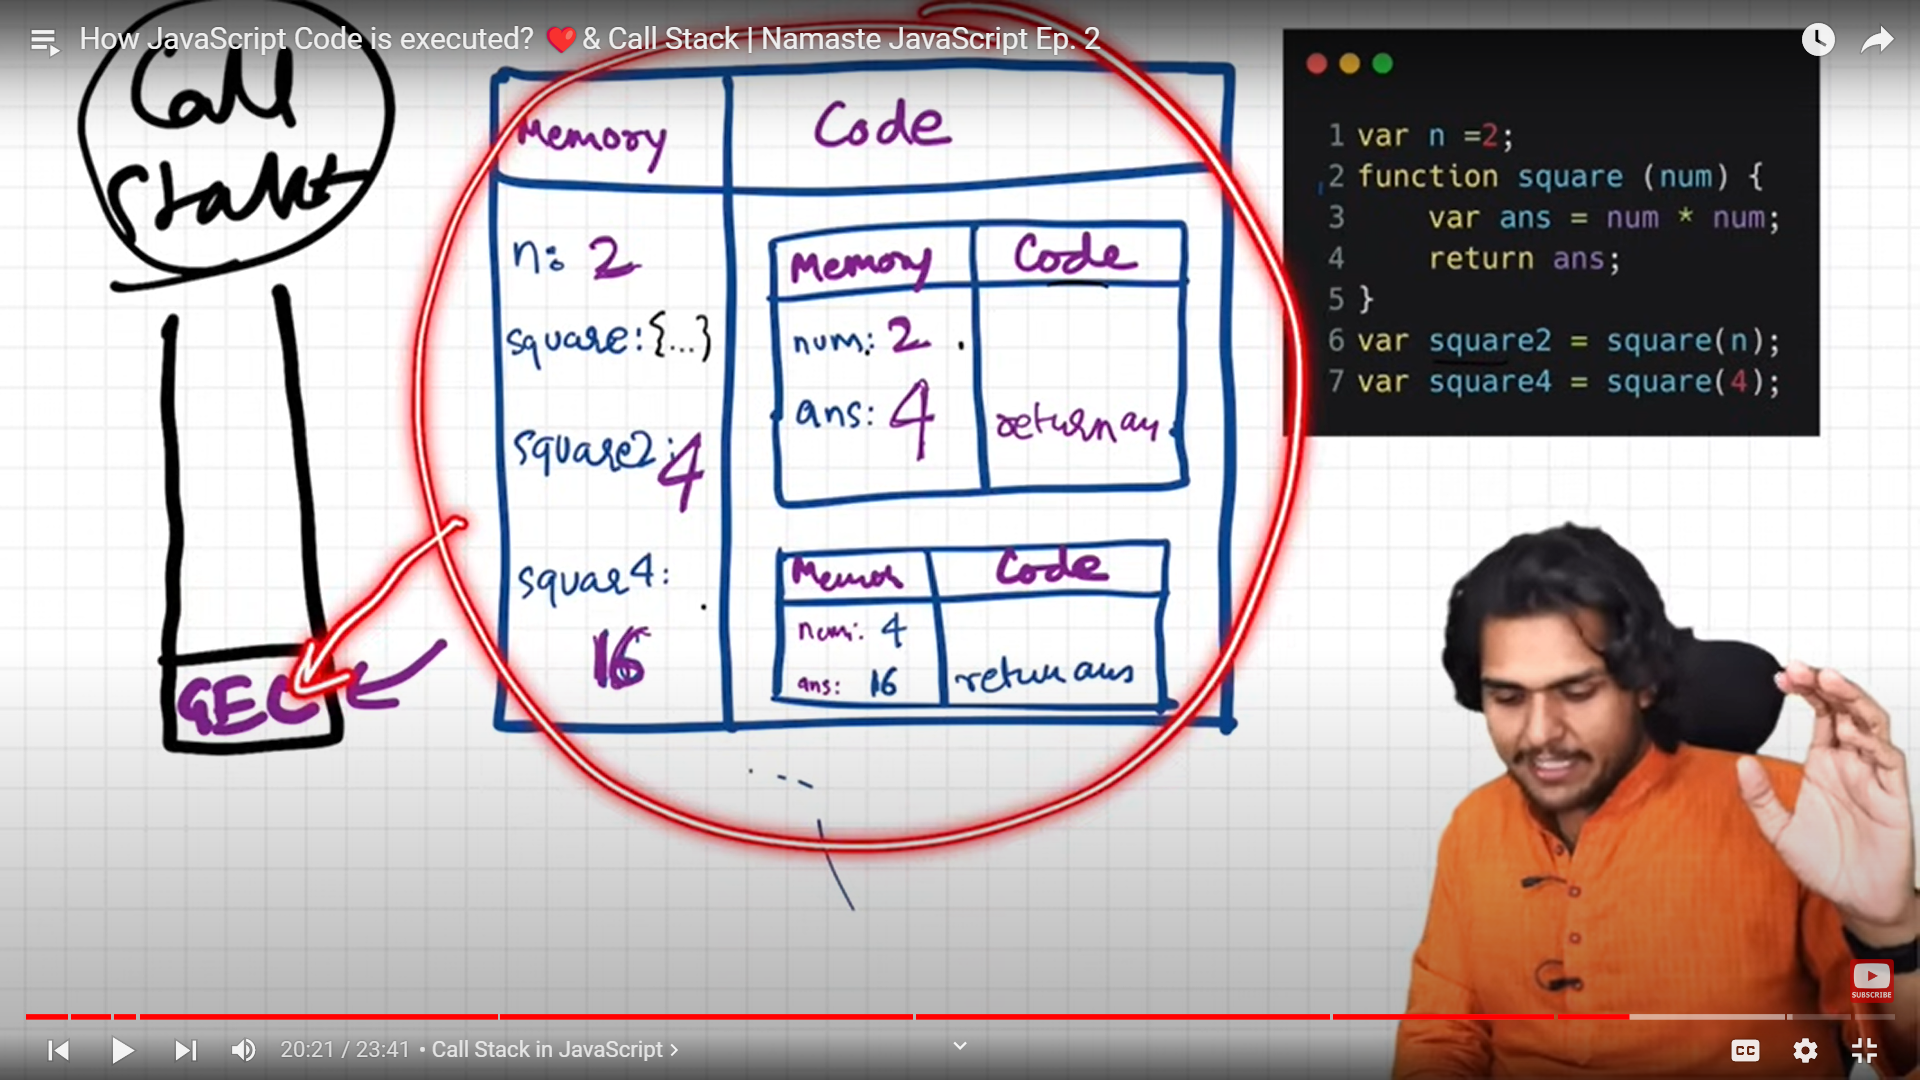 How JavaScript Code is executed? ❤️ & Call Stack | Namaste JavaScript Ep. 2
Call
Stack
GEC
Memory Code
n: 2
square: {...}
square2: 4
squar4:
16
Memory Code
num: 2
ans: 4
return an
Memor Code
num: 4
ans: 16
return ans
1 var n =2;
2 function square (num) {
3 var ans = num * num;
4 return ans;
5 }
6 var square2 = square(n);
7 var square4 = square(4);
SUBSCRIBE
20:21 / 23:41 • Call Stack in JavaScript ›
CC